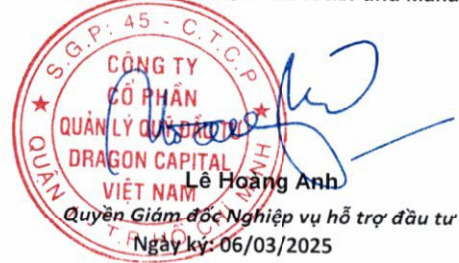 S.G.P: 45 - C.T.C.P
CÔNG TY
CỔ PHẦN
QUẢN LÝ QUỸ ĐẦU TƯ
DRAGON CAPITAL
VIỆT NAM
T.P HỒ CHÍ MINH
Lê Hoàng Anh
Quyền Giám đốc Nghiệp vụ hỗ trợ đầu tư
Ngày ký: 06/03/2025